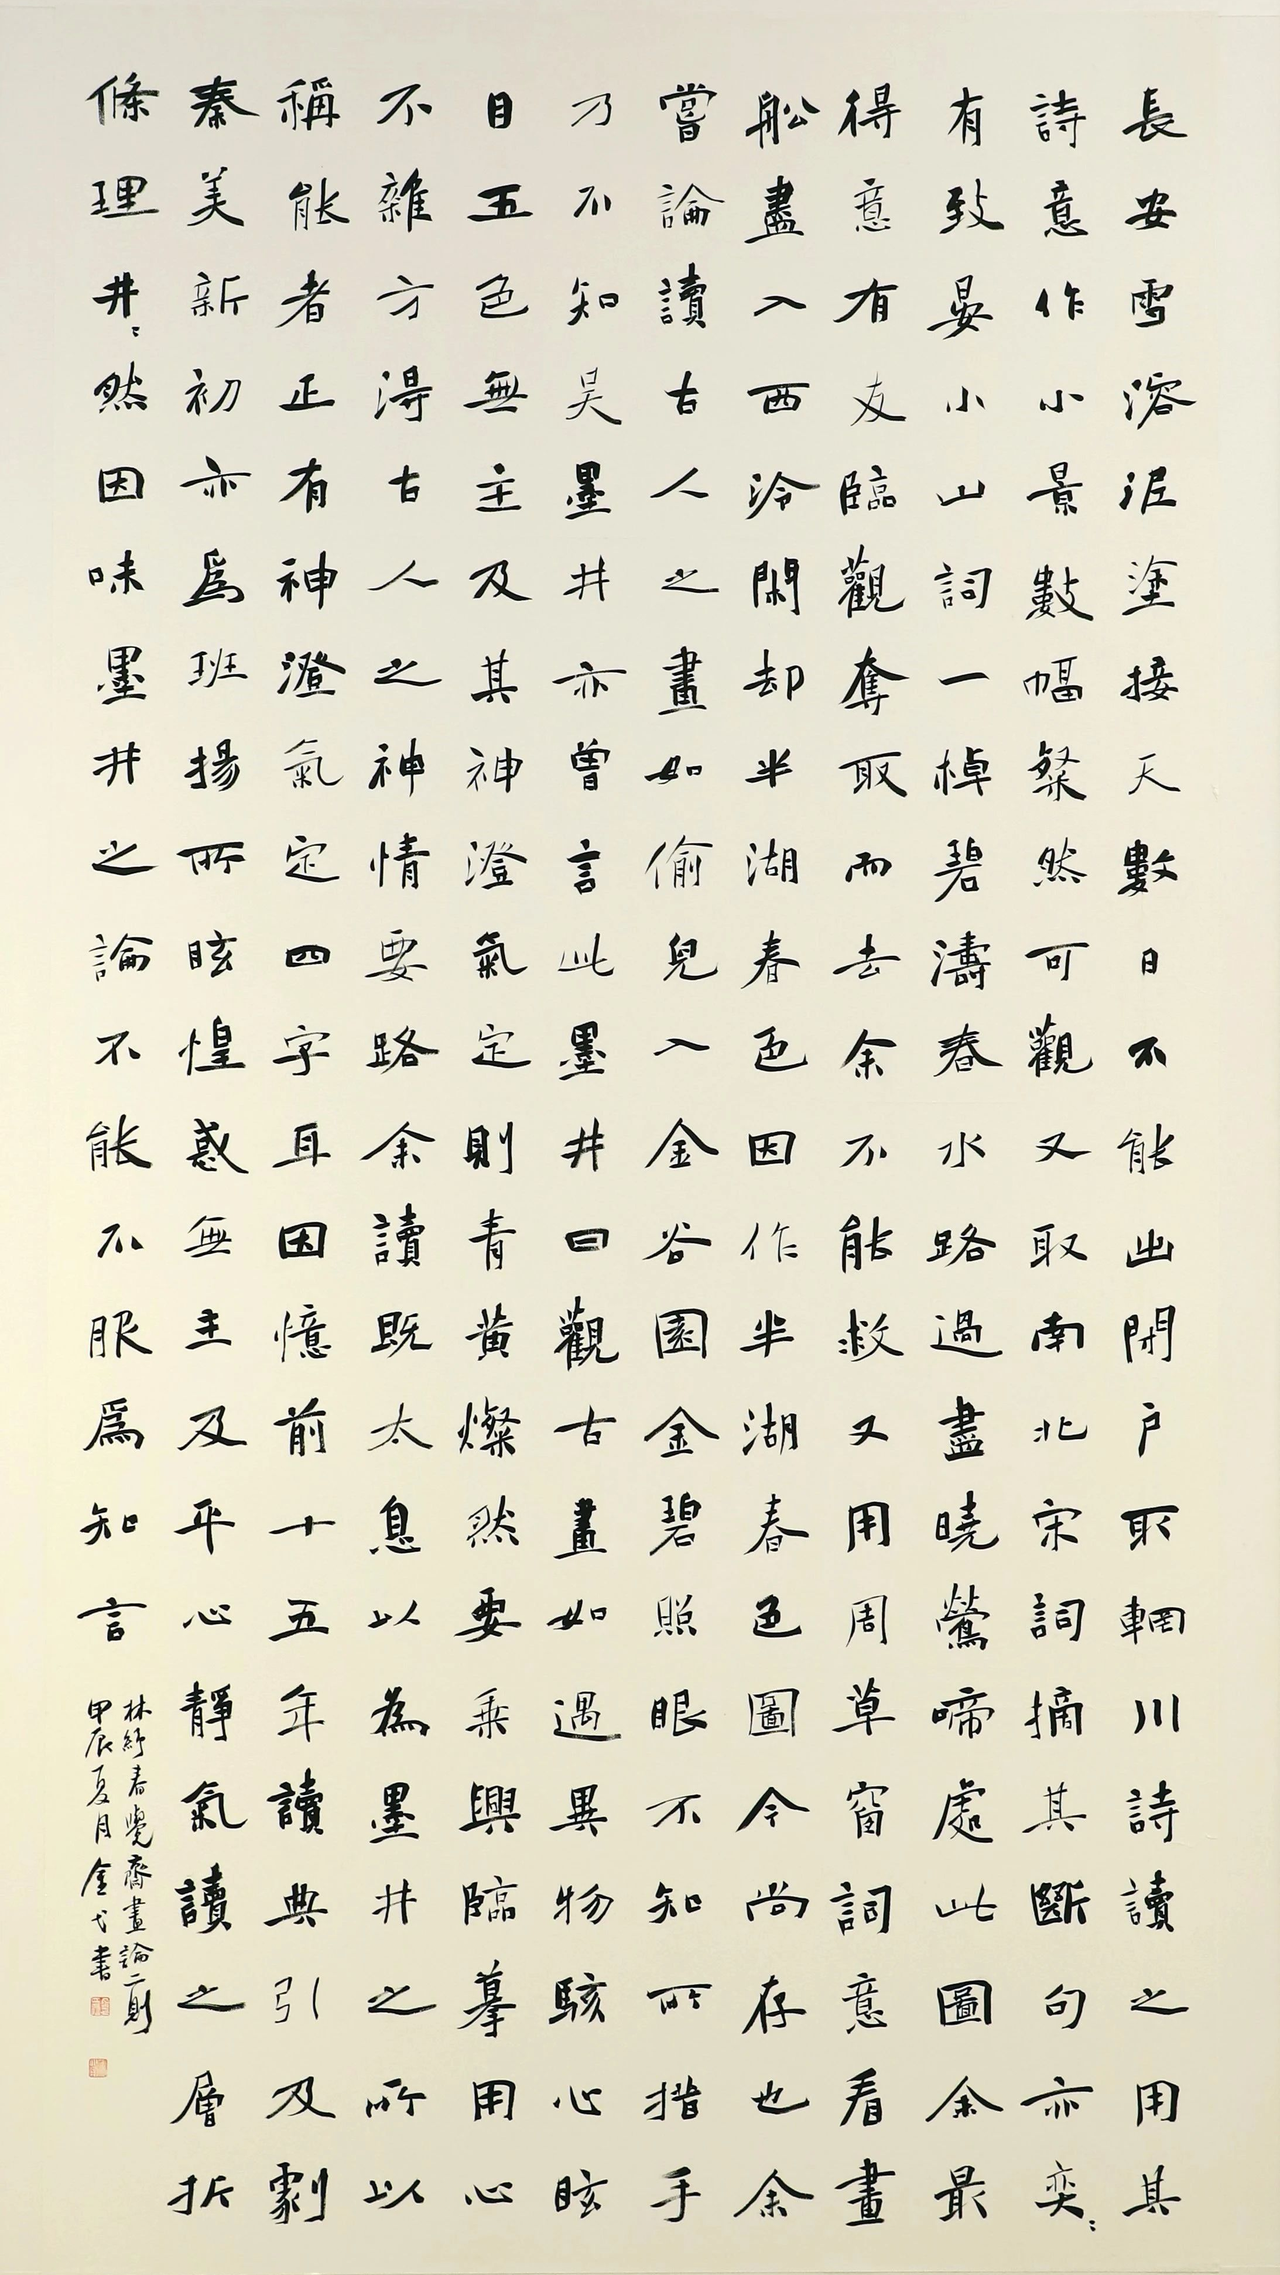 長安雪溶泥塗接天數日不能出閉戶取輞川詩讀之用其
詩意作小景數幅粲然可觀又取南北宋詞摘其斷句亦奕〻
有致晏小山詞一棹碧濤春水路過盡曉鶯啼處此圖余最
得意有友臨觀奪取而去余不能救又用周草窗詞意看畫
船盡入西泠閑却半湖春色因作半湖春色圖今尚存也余
嘗論讀古人之畫如偷兒入金谷園金碧照眼不知所措手
乃不知吴墨井亦曾言此墨井曰觀古畫如遇異物駭心眩
目五色無主及其神澄氣定則青黃燦然要乘興臨摹用心
不雜方得古人之神情要路余讀既太息以為墨井之所以
稱能者正有神澄氣定四字耳因憶前十五年讀典引及劇
秦美新初亦為班揚所眩惶惑無主及平心靜氣讀之層折
條理井〻然因味墨井之論不能不服為知言
林紓春覺齋畫論二則
甲辰夏月金弋書